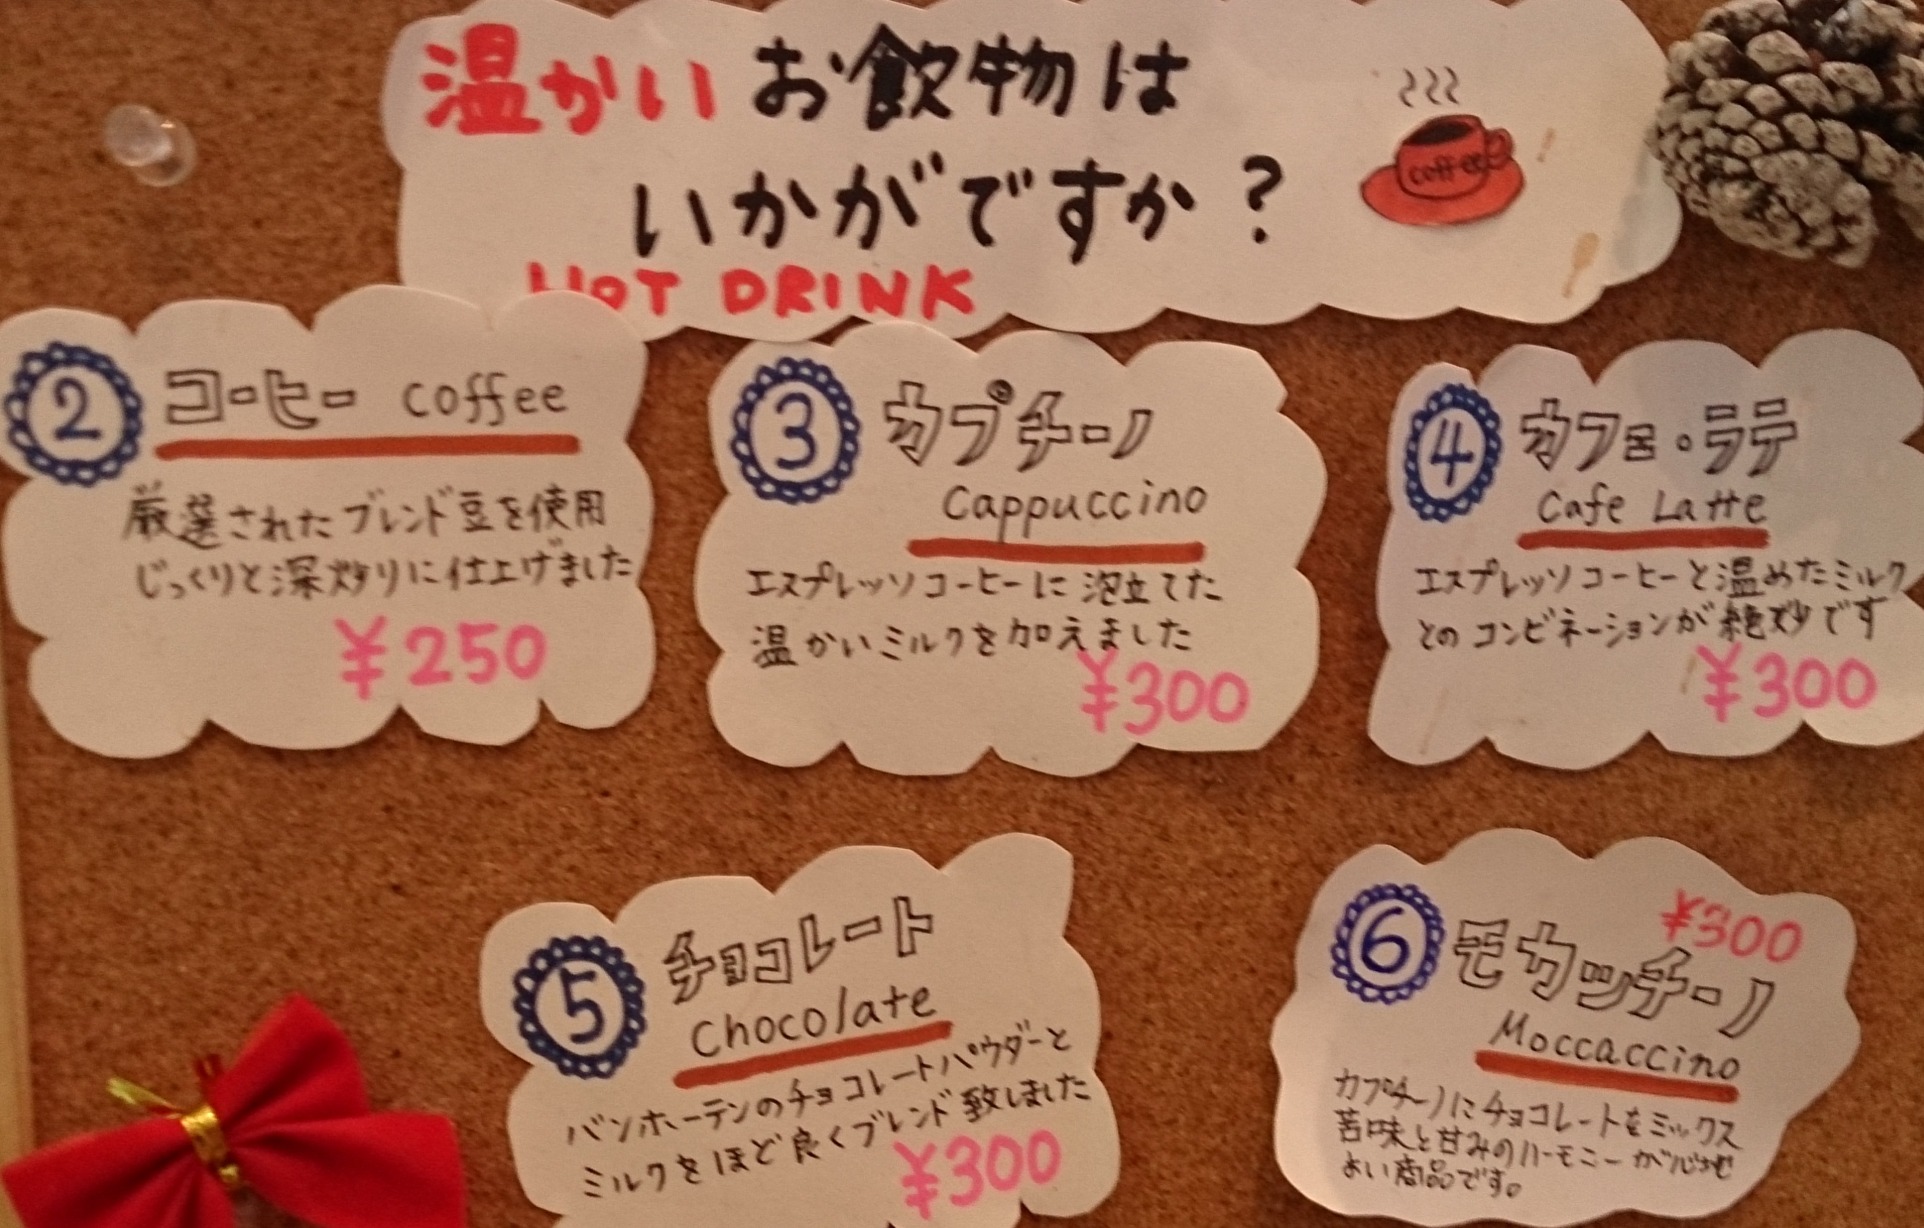 温かいお飲物は
いかがですか？
coffee
HOT DRINK
2 コーヒー coffee
厳選されたブレンド豆を使用
じっくりと深炒りに仕上げました
¥250
3 カプチーノ
Cappuccino
エスプレッソコーヒーに泡立てた
温かいミルクを加えました
¥300
4 カフェ・ラテ
Cafe Latte
エスプレッソコーヒーと温めたミルク
とのコンビネーションが絶妙です
¥300
5 チョコレート
Chocolate
バンホーテンのチョコレートパウダーと
ミルクをほど良くブレンド致しました
¥300
¥300
6 モカッチーノ
Moccaccino
カプチーノにチョコレートをミックス
苦味と甘みのハーモニーが心地
よい商品です。